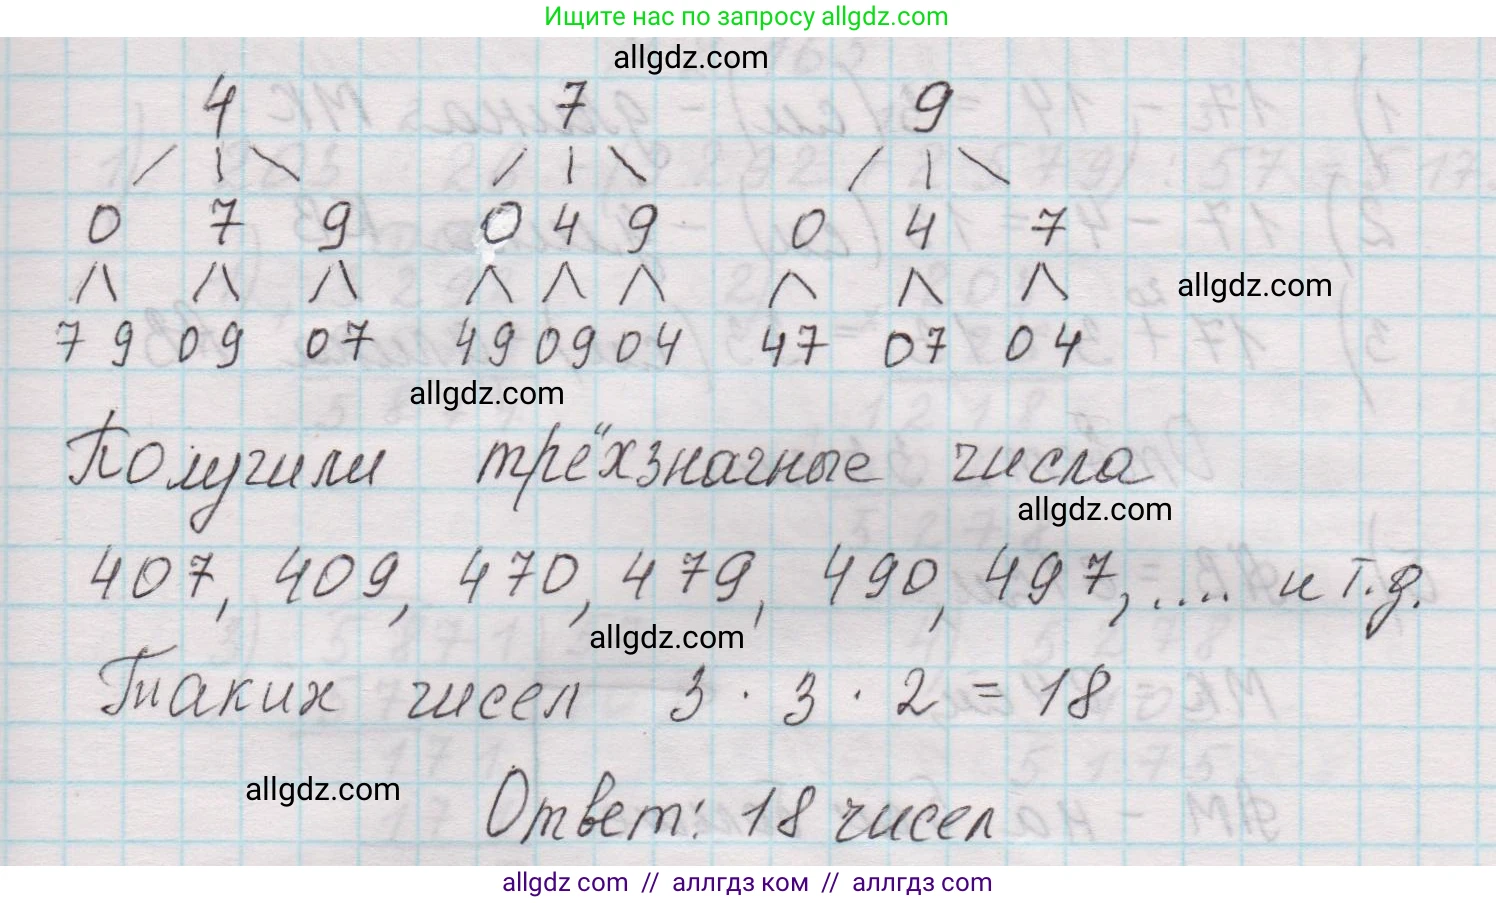 Ищите нас по запросу allgdz.com
allgdz.com
4 7 9
0 7 9 0 4 9 0 4 7
allgdz.com
7 9 0 9 0 7 4 9 0 9 0 4 4 7 0 7 0 4
allgdz.com
Получили трёхзначные числа
allgdz.com
407, 409, 470, 479, 490, 497, .... и т.д.
allgdz.com
Таких чисел 3 · 3 · 2 = 18
allgdz.com
Ответ: 18 чисел
allgdz com // аллгдз ком // аллгдз com